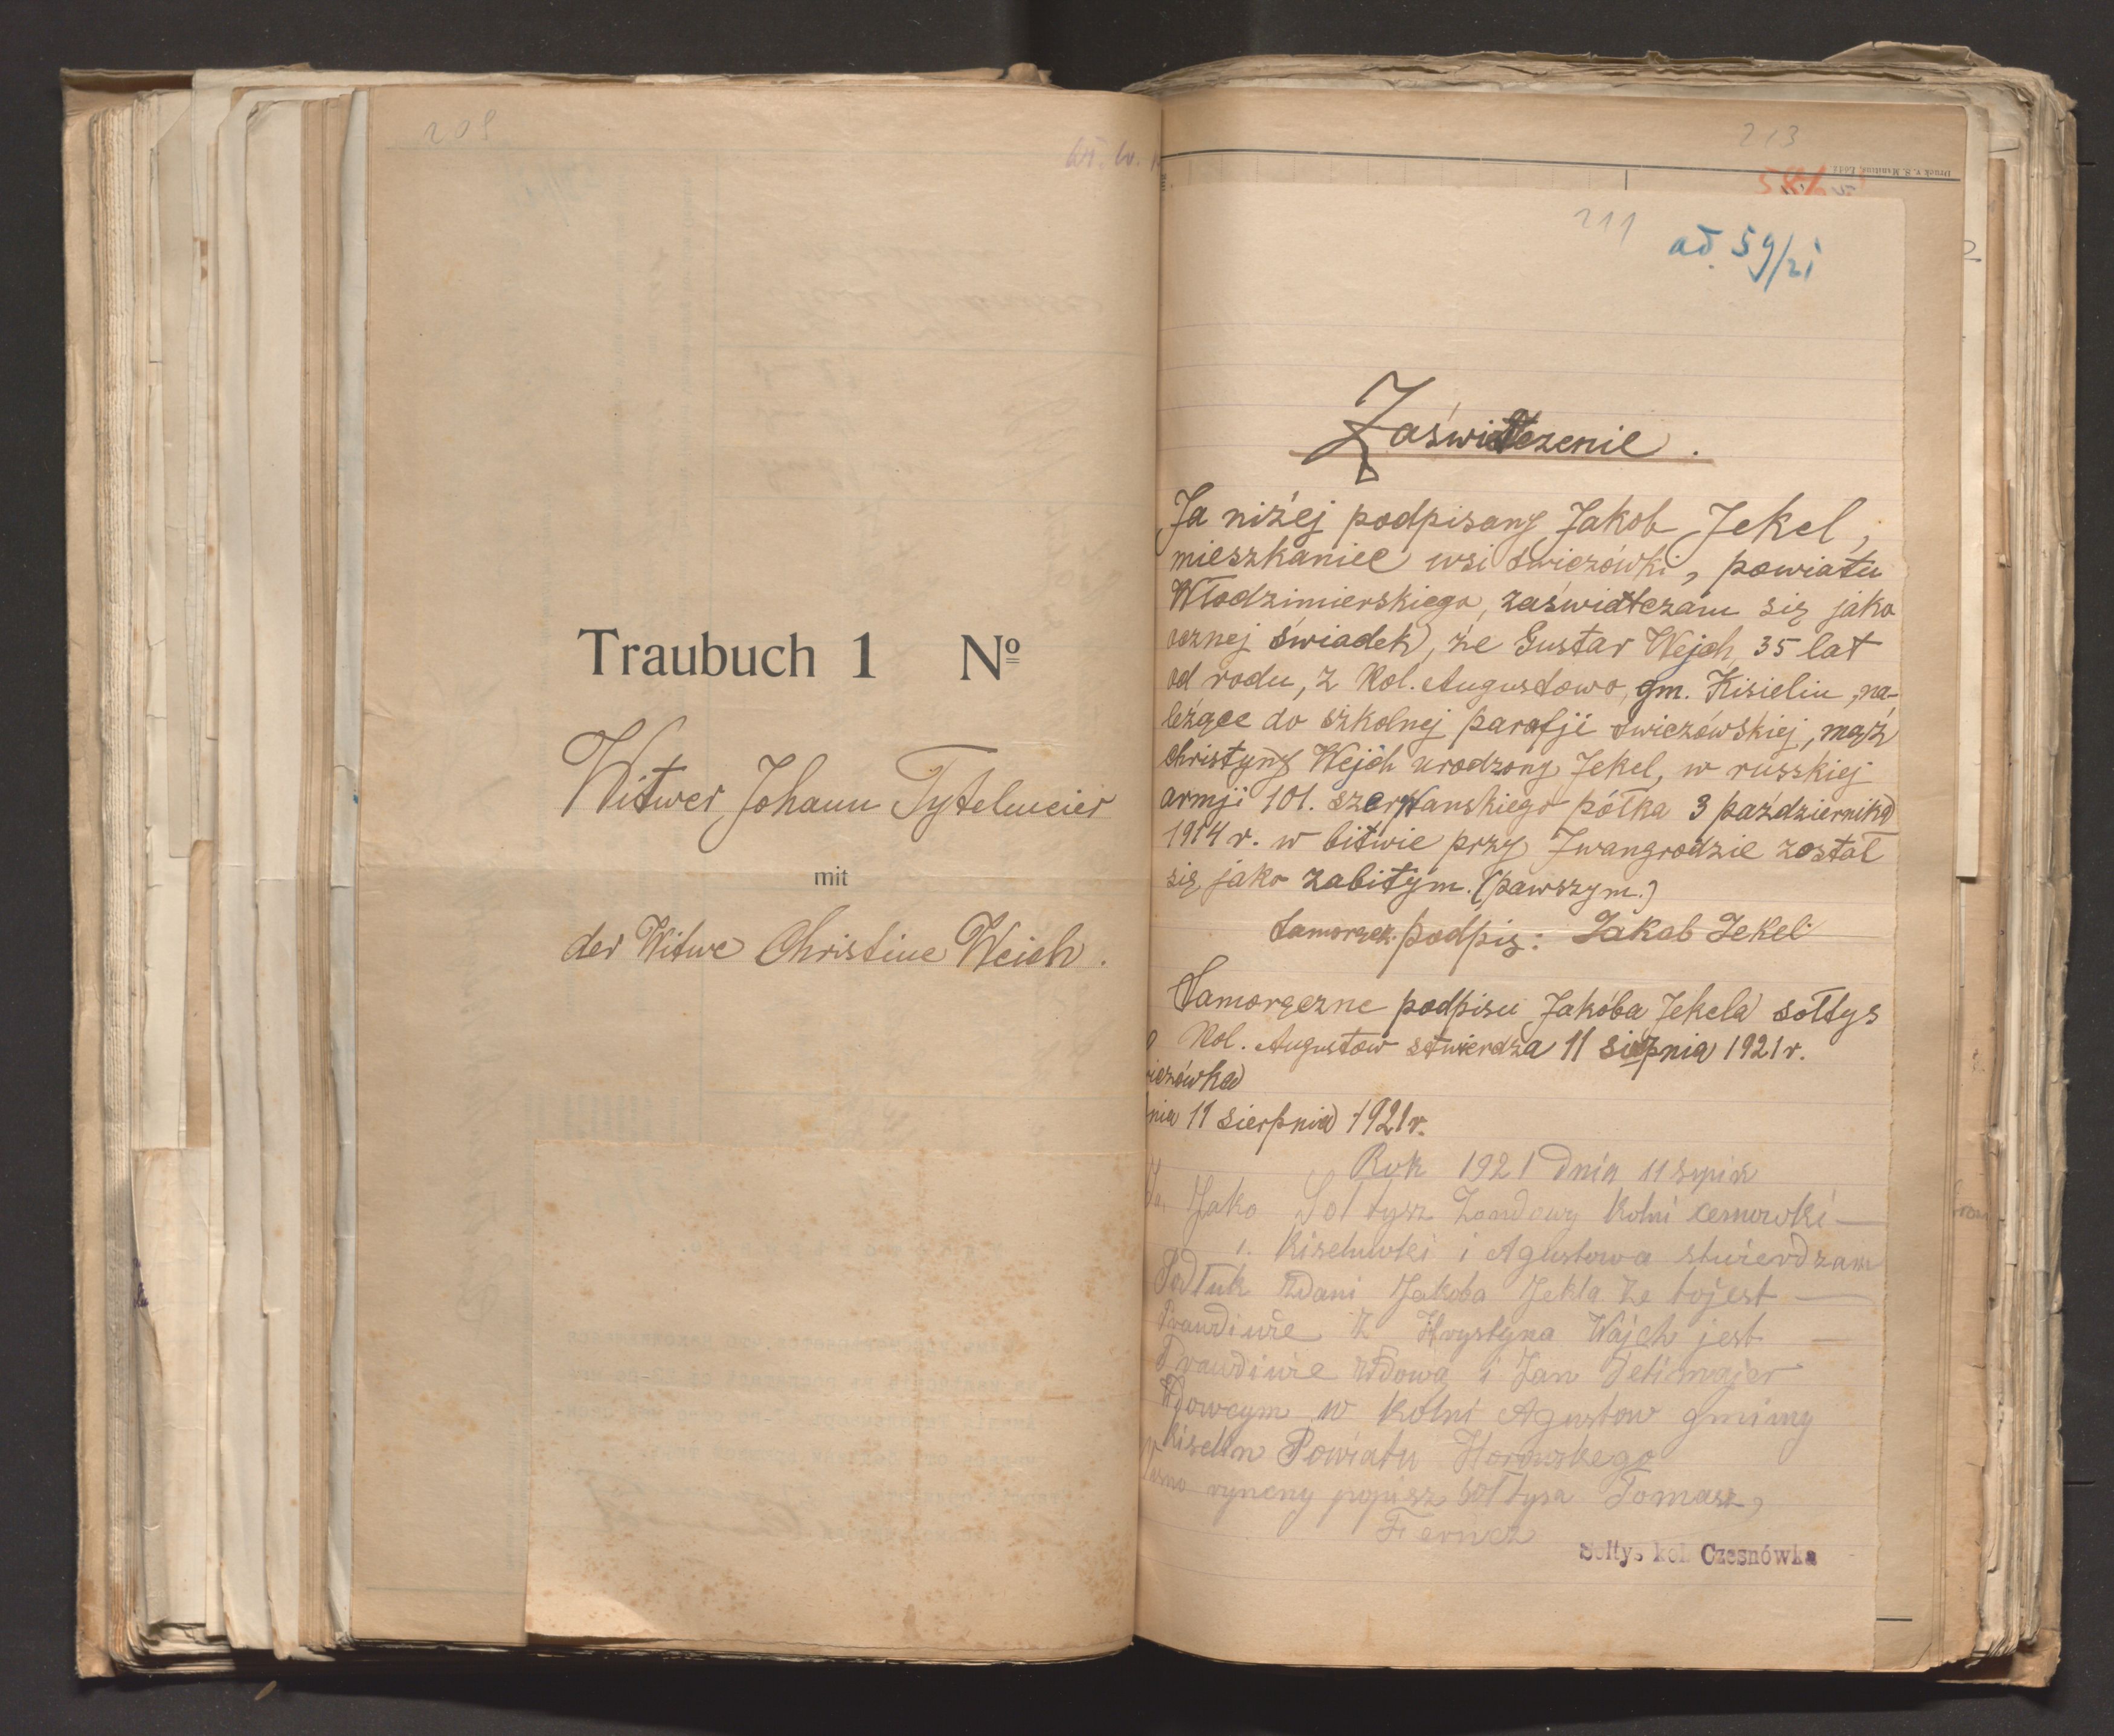 209
Traubuch 1 Nº
Witwer Johann Tytelmeier
mit
der Witwe Christine Weich.
213
Druck v. S. Manitius, Łódź
211
ad. 59/21
Zaświadczenie.
Ja niżej podpisany Jakob Jekel,
mieszkaniec wsi Swiczówki, powiatu
Włodzimierskiego, zaświatczam się jako
ocznej świadek, że Gustav Wejch, 35 lat
od rodu, z Kol. Augustowo, gm. Kisielin, na-
leżące do szkolnej parafji Swiczówskiej, mąż
Christyny Wejch urodzony Jekel, w russkiej
armji 101. półka 3 października
1914 r. w bitwie przy Iwangrodzie został
się jako zabitym. (pawszym.)
Samoręcz. podpis: Jakob Jekel
Samoręczne podpisu Jakóba Jekela sołtys
Kol. Augustow stwierdza 11 sierpnia 1921 r.
iczówka
nia 11 sierpnia 1921 r.
Rok 1921 Dnia 11
Ja, Jako Soltysz Kolni
i. Kiseluwki i Agustowa stwierdzam
Podług zdani Jakoba Jekla że tojest
Prawdiwie i Hrystyna Wajch jest
Prawdiwie wdową i Jan Detimajer
Wdowcym w Kolni Agustow gminy
Kiselin Powiatu Horowskego
popisz sołtysa Tomasz,
Sołtys kol. Czesnówka